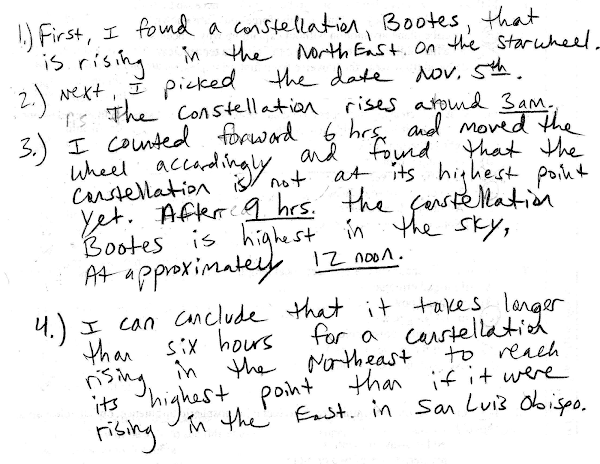 1.) First, I found a constellation, Bootes, that
is rising in the NorthEast on the starwheel.
2.) Next, I picked the date Nov. 5th.
The constellation rises around 3am.
3.) I counted forward 6 hrs and moved the
wheel accordingly and found that the
constellation is not at its highest point
yet. After 9 hrs. the constellation
Bootes is highest in the sky,
At approximately 12 noon.
4.) I can conclude that it takes longer
than six hours for a constellation
rising in the Northeast to reach
its highest point than if it were
rising in the East. in San Luis Obispo.